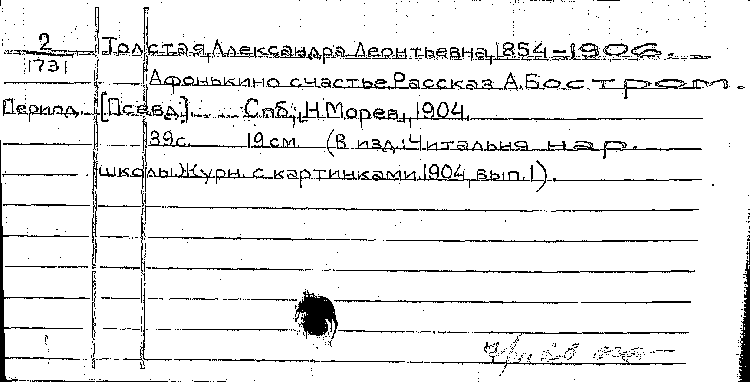 2 Толстая, Александра Леонтьевна, 1854-1906.
1731
Афонькино счастье. Рассказ А. Бостром.
Период. [Псевд.]. Спб., Н. Морев, 1904.
39 с. 19 см. (В изд.: Читальня нар.
школы. Журн. с картинками. 1904, вып. 1).